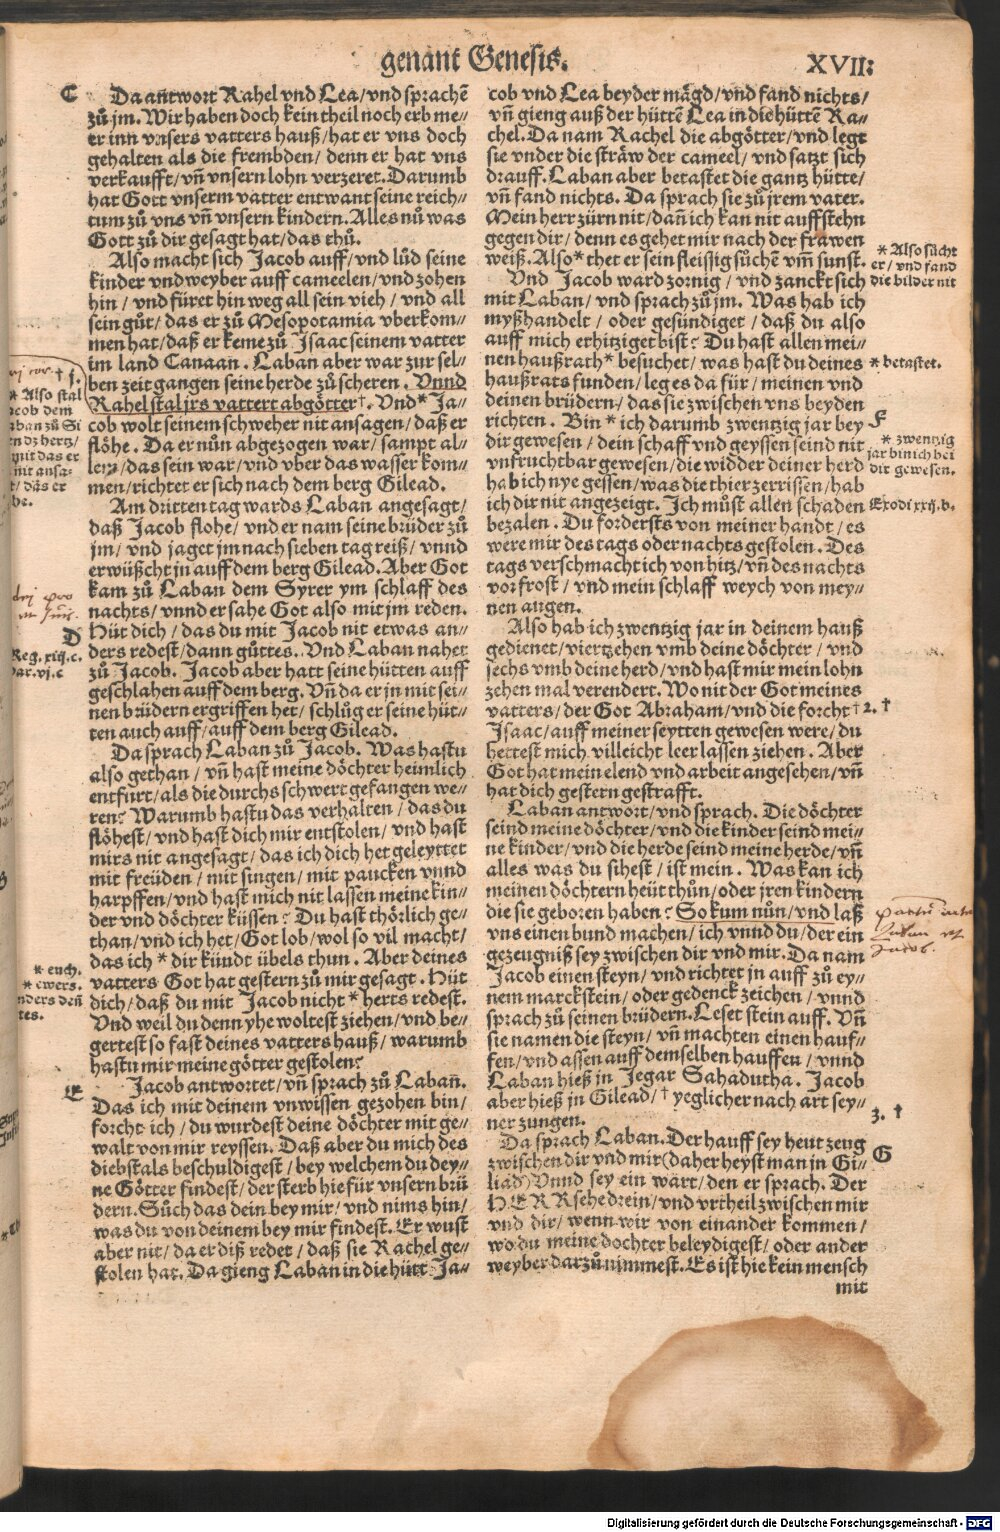 genant Genesis.
XVII:
C
Da antwort Rahel vnd Lea/vnd sprachē
zů jm. Wir haben doch kein theil noch erb me⸗
er inn vnsers vatters hauß/hat er vns doch
gehalten als die frembden/ denn er hat vns
verkaufft/vñ vnsern lohn verzeret. Darumb
hat Gott vnserm vatter entwant seine reich⸗
tum zů vns vñ vnsern kindern. Alles nů was
Gott zů dir gesagt hat/das thů.
Also macht sich Jacob auff/vnd lůd seine
kinder vnd weyber auff cameelen/vnd zohen
hin/ vnd füret hin weg all sein vieh/ vnd all
sein gůt/ das er zů Mesopotamia vberkom⸗
men hat/daß er keme zů Isaac seinem vatter
im land Canaan. Laban aber war zur sel⸗
ben zeit gangen seine herde zů scheren. Vnnd
Rahel stal jrs vattert abgötter†. Vnd* Ja⸗
cob wolt seinem schweher nit ansagen/ daß er
flöhe. Da er nůn abgezogen war/ sampt al⸗
lem/das sein war/vnd vber das wasser kom⸗
men/richtet er sich nach dem berg Gilead.
Am dritten tag wards Laban angesagt/
daß Jacob flohe/ vnd er nam seine brüder zů
jm/ vnd jaget jm nach sieben tag reiß/ vnnd
erwüßcht jn auff dem berg Gilead. Aber Got
kam zů Laban dem Syrer ym schlaff des
nachts/ vnnd er sahe Got also mit jm reden.
Hüt dich/ das du mit Jacob nit etwas an⸗
ders redest/dann gůttes. Vnd Laban nahet
zů Jacob. Jacob aber hatt seine hütten auff
geschlahen auff dem berg. Vñ da er jn mit sei⸗
nen brüdern ergriffen het/ schlůg er seine hüt⸗
ten auch auff/auff dem berg Gilead.
Da sprach Laban zů Jacob. Was hastu
also gethan/ vñ hast meine döchter heimlich
entfurt/als die durchs schwert gefangen we⸗
ren? Warumb hastu das verhalten/ das du
flöhest/ vnd hast dich mir entstolen/ vnd hast
mirs nit angesagt/das ich dich het geleyttet
mit freüden/ mit singen/ mit paucken vnnd
harpffen/vnd hast mich nit lassen meine kin⸗
der vnd döchter küssen? Du hast thörlich ge⸗
than/vnd ich het/Got lob/wol so vil macht/
das ich * dir kündt übels thun. Aber deines
vatters Got hat gestern zů mir gesagt. Hüt
dich/ daß du mit Jacob nicht * herts redest.
Vnd weil du denn yhe woltest ziehen/vnd be⸗
gertest so fast deines vatters hauß/ warumb
hastu mir meine götter gestolen?
Jacob antwortet/vñ sprach zů Laban.
Das ich mit deinem vnwissen gezohen bin/
forcht ich/ du wurdest deine döchter mit ge⸗
walt von mir reyssen. Daß aber du mich des
diebstals beschuldigest/ bey welchem du dey⸗
ne Götter findest/der sterb hie für vnsern brü
dern. Sůch das dein bey mir/ vnd nims hin/
was du von deinem bey mir findest. Er wust
aber nit/ da er diß redet/ daß sie Rachel ge⸗
stolen hat. Da gieng Laban in die hütt Ja⸗
* Also stal
D
Reg. xiij. c.
* euch.
* ewers.
E
cob vnd Lea beyder mägd/vnd fand nichts/
vñ gieng auß der hüttē Lea in die hüttē Ra⸗
chel. Da nam Rachel die abgötter/vnd legt
sie vnder die sträw der cameel/ vnd satzt sich
drauff. Laban aber betastet die gantz hütte/
vñ fand nichts. Da sprach sie zů jrem vater.
Mein herr zürn nit/dañ ich kan nit auffstehn
gegen dir/ denn es gehet mir nach der frawen
weiß. Also* thet er sein fleissig sůchē vm̄ sunst.
Vnd Jacob ward zornig/ vnd zanckt sich
mit Laban/ vnd sprach zů jm. Was hab ich
myßhandelt/ oder gesündiget/ daß du also
auff mich erhitziget bist? Du hast allen mei⸗
nen haußrath* besuchet/ was hast du deines
haußrats funden/ leg es da für/ meinen vnd
deinen brüdern/ das sie zwischen vns beyden
richten. Bin * ich darumb zwentzig jar bey
dir gewesen/ dein schaff vnd geyssen seind nit
vnfruchtbar gewesen/die widder deiner herd
hab ich nye gessen/was die thier zerrissen/hab
ich dir nit angezeigt. Ich můst allen schaden
bezalen. Du fordersts von meiner handt/ es
were mir des tags oder nachts gestolen. Des
tags verschmacht ich von hitz/ vñ des nachts
vor frost/ vnd mein schlaff weych von mey⸗
nen augen.
Also hab ich zwentzig jar in deinem hauß
gedienet/viertzehen vmb deine döchter/ vnd
sechs vmb deine herd/vnd hast mir mein lohn
zehen mal verendert. Wo nit der Got meines
vatters/ der Got Abraham/vnd die forcht†
Isaac/auff meiner seytten gewesen were/du
hettest mich villeicht leer lassen ziehen. Aber
Got hat mein elend vnd arbeit angesehen/vñ
hat dich gestern gestrafft.
Laban antwort/vnd sprach. Die döchter
seind meine döchter/vnd die kinder seind mei⸗
ne kinder/ vnd die herde seind meine herde/vñ
alles was du sihest/ ist mein. Was kan ich
meinen döchtern heüt thůn/oder jren kindern
die sie geboren haben? So kum nůn/vnd laß
vns einen bund machen/ ich vnnd du/der ein
gezeugniß sey zwischen dir vnd mir. Da nam
Jacob einen steyn/ vnd richtet jn auff zů ey⸗
nem marckstein/ oder gedenck zeichen/ vnnd
sprach zů seinen brüdern. Leset stein auff. Vñ
sie namen die steyn/ vñ machten einen hauf⸗
fen/vnd assen auff demselben hauffen/ vnnd
Laban hieß jn Jegar Sahadutha. Jacob
aber hieß jn Gilead/† yeglicher nach art sey⸗
ner zungen.
Da sprach Laban. Der hauff sey heut zeug
zwischen dir vnd mir (daher heyst man jn Gi⸗
liad) Vnnd sey ein wart/ den er sprach. Der
HERR sehe drein/vnd vrtheil zwischen mir
vnd dir/ wenn wir von einander kommen/
wo du meine dochter beleydigest/ oder ander
weyber darzů nimmest. Es ist hie kein mensch
mit
* Also sücht
er/ vnd fand
die bilder nit
* betastet.
F
* zwentzig
jar bin ich bei
dir gewesen.
Exodi xxij. b.
2. †
3. †
G
Digitalisierung gefördert durch die Deutsche Forschungsgemeinschaft - DFG